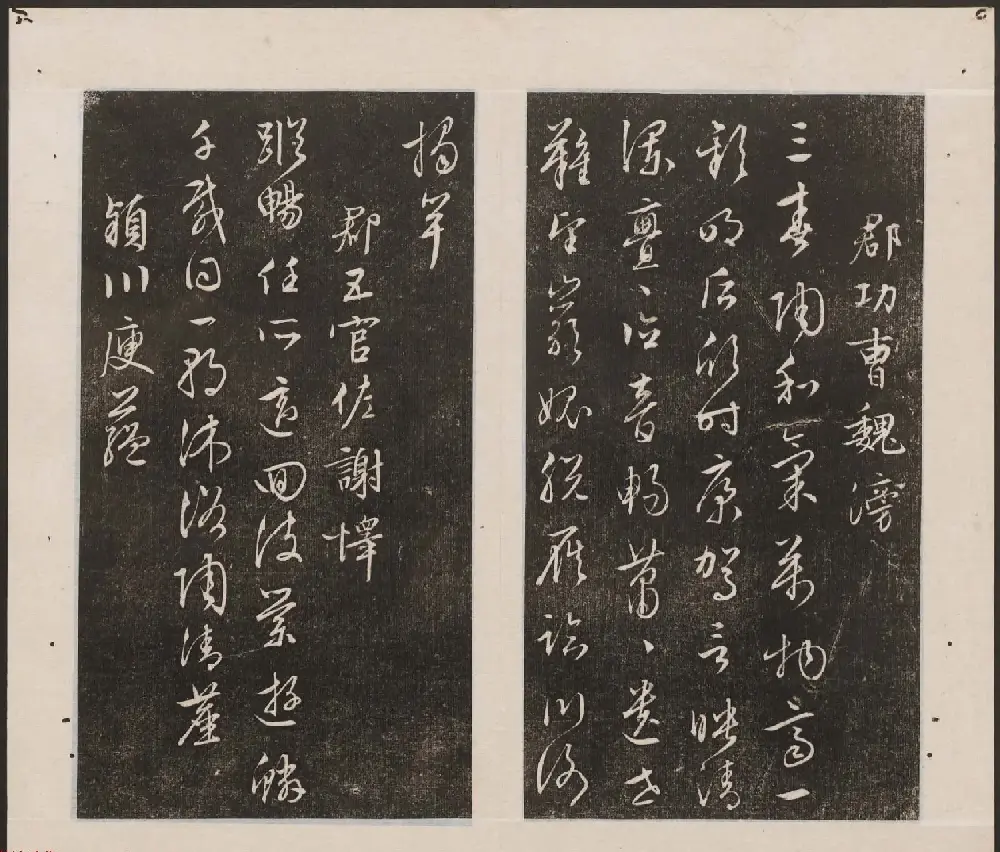 郡功曹魏滂
三春陶和氣萬物齊一
歡明后欣時康駕言映清
瀾亹〻德音暢蕭〻遺世
難望巖愧脫屣臨川謝
揭竿
郡五官佐謝懌
蹤暢任所適回波縈遊鱗
千載同一朝沐浴陶清塵
潁川庾蘊